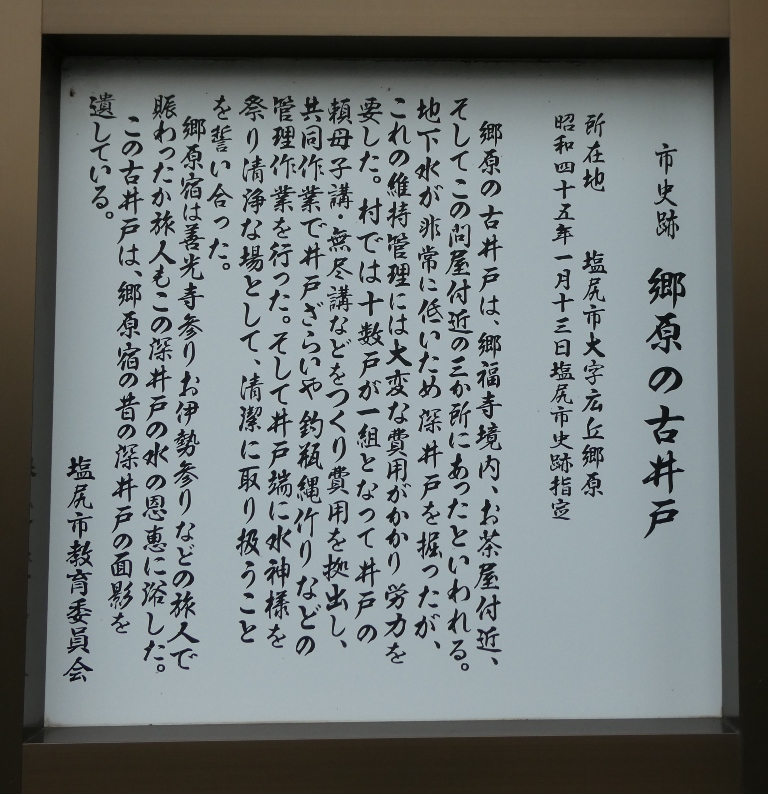 市史跡 郷原の古井戸
所在地 塩尻市大字広丘郷原
昭和四十五年一月十三日塩尻市史跡指定
郷原の古井戸は、郷福寺境内、お茶屋付近、
そしてこの問屋付近の三か所にあったといわれる。
地下水が非常に低いため深井戸を掘ったが、
これの維持管理には大変な費用がかかり労力を
要した。村では十数戸が一組となって井戸の
頼母子講・無尽講などをつくり費用を拠出し、
共同作業で井戸ざらいや釣瓶縄作りなどの
管理作業を行った。そして井戸端に水神様を
祭り清浄な場として、清潔に取り扱うこと
を誓い合った。
郷原宿は善光寺参りお伊勢参りなどの旅人で
賑わったか旅人もこの深井戸の水の恩恵に浴した。
この古井戸は、郷原宿の昔の深井戸の面影を
遺している。
塩尻市教育委員会